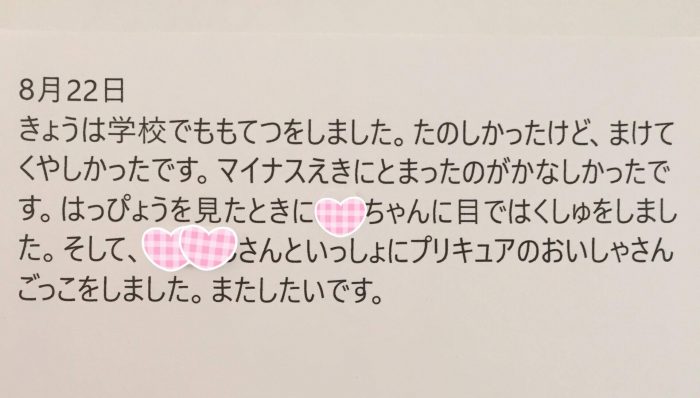 8月22日
きょうは学校でももてつをしました。たのしかったけど、まけて
くやしかったです。マイナスえきにとまったのがかなしかったで
す。はっぴょうを見たときに ちゃんに目ではくしゅをしまし
た。そして、 さんといっしょにプリキュアのおいしゃさん
ごっこをしました。またしたいです。